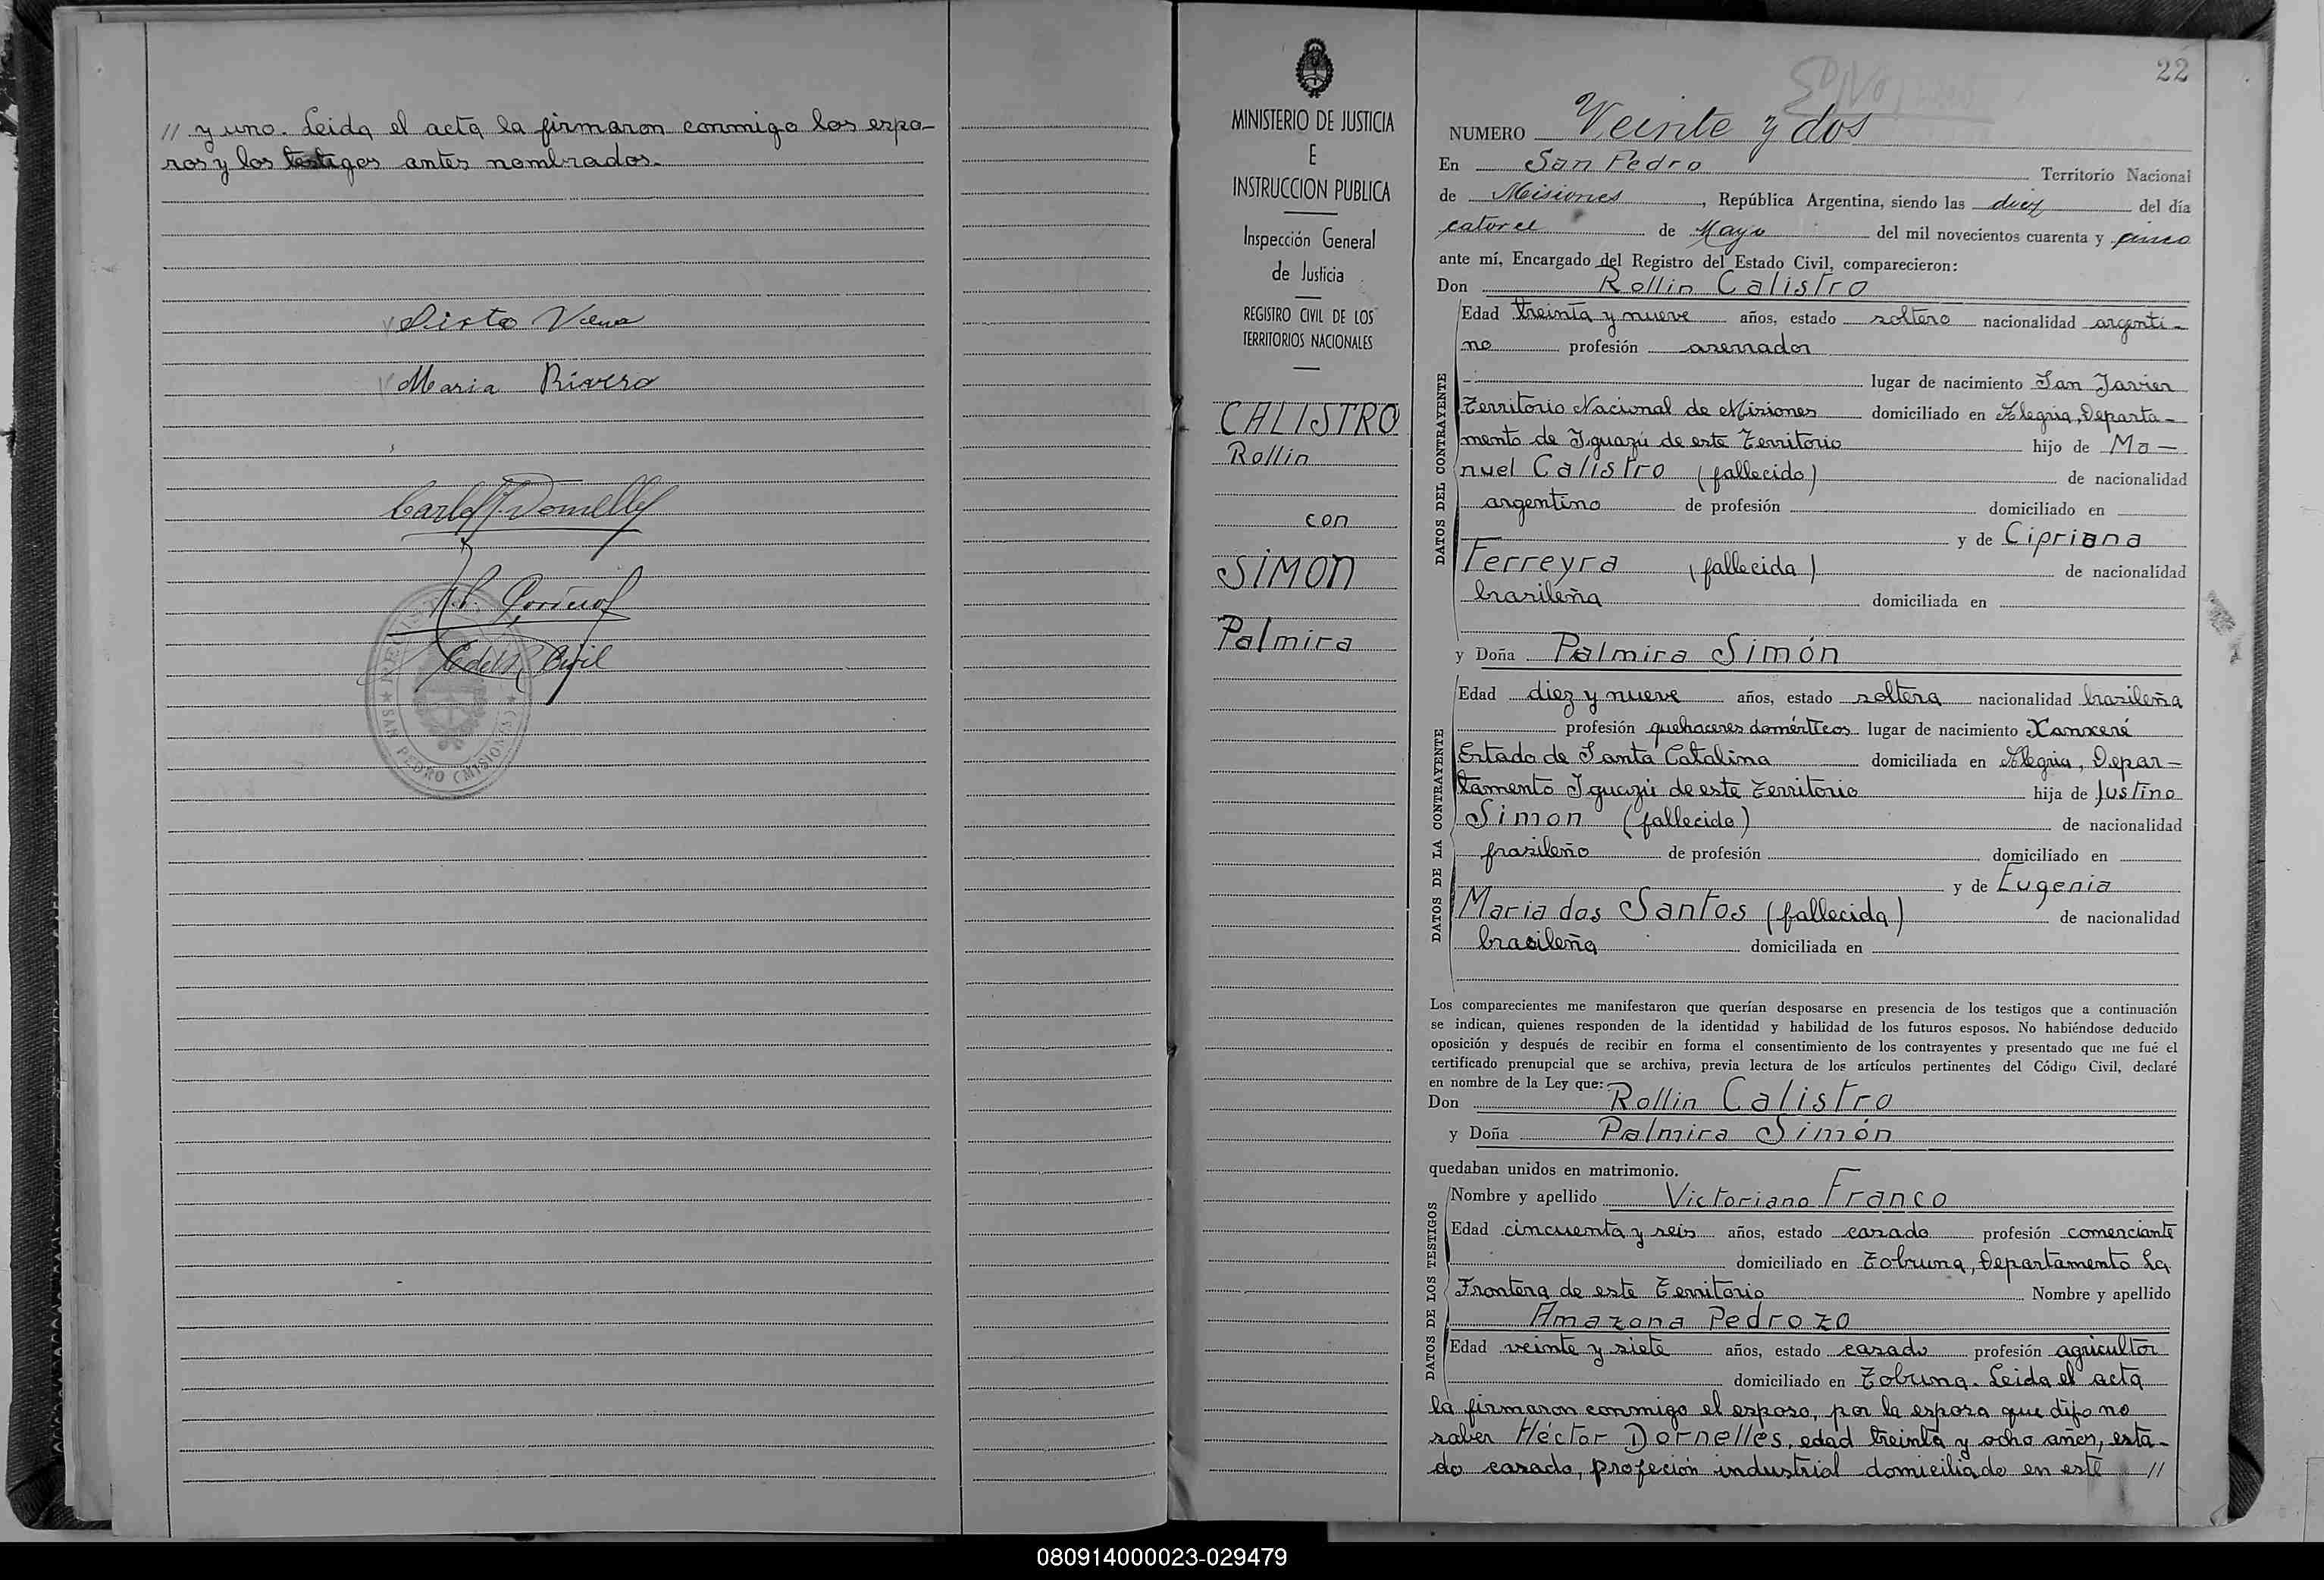 // y uno. Leida el acta la firmaron conmigo los espo-
sos y los testigos antes nombrados.-
Sixto Viena
Maria Rivero
Civil
★ SAN PEDRO (MISIONES) ★
MINISTERIO DE JUSTICIA
E
INSTRUCCION PUBLICA
Inspección General
de Justicia
REGISTRO CIVIL DE LOS
TERRITORIOS NACIONALES
CALISTRO
Rollin
con
SIMON
Palmira
22
NUMERO Veinte y dos
En San Pedro Territorio Nacional
de Misiones, República Argentina, siendo las diez del día
catorce de Mayo del mil novecientos cuarenta y cinco
ante mí, Encargado del Registro del Estado Civil, comparecieron:
Don Rollin Calistro
DATOS DEL CONTRAYENTE
Edad treinta y nueve años, estado soltero nacionalidad argenti-
no profesión aserrador
lugar de nacimiento San Javier
Territorio Nacional de Misiones domiciliado en Alegria, Departa-
mento de Iguazú de este Territorio hijo de Ma-
nuel Calistro (fallecido) de nacionalidad
argentino de profesión domiciliado en
y de Cipriana
Ferreyra (fallecida) de nacionalidad
brasileña domiciliada en
y Doña Palmira Simón
DATOS DE LA CONTRAYENTE
Edad diez y nueve años, estado soltera nacionalidad brasileña
profesión quehaceres domésticos lugar de nacimiento Xanxeré
Estado de Santa Catalina domiciliada en Alegria, Depar-
tamento Iguazú de este Territorio hija de Justino
Simon (fallecido) de nacionalidad
frasileño de profesión domiciliado en
y de Eugenia
Maria dos Santos (fallecida) de nacionalidad
brasileña domiciliada en
Los comparecientes me manifestaron que querían desposarse en presencia de los testigos que a continuación
se indican, quienes responden de la identidad y habilidad de los futuros esposos. No habiéndose deducido
oposición y después de recibir en forma el consentimiento de los contrayentes y presentado que me fué el
certificado prenupcial que se archiva, previa lectura de los artículos pertinentes del Código Civil, declaré
en nombre de la Ley que:
Don Rollin Calistro
y Doña Palmira Simón
quedaban unidos en matrimonio.
DATOS DE LOS TESTIGOS
Nombre y apellido Victoriano Franco
Edad cincuenta y seis años, estado casado profesión comerciante
domiciliado en Tobuna, Departamento La
Frontera de este Territorio Nombre y apellido
Amazona Pedrozo
Edad veinte y siete años, estado casado profesión agricultor
domiciliado en Tobuna. Leida el acta
la firmaron conmigo el esposo, por la esposa que dijo no
saber Héctor Dornelles, edad treinta y ocho años, esta-
do casado, profeción industrial domiciliado en este //
080914000023-029479